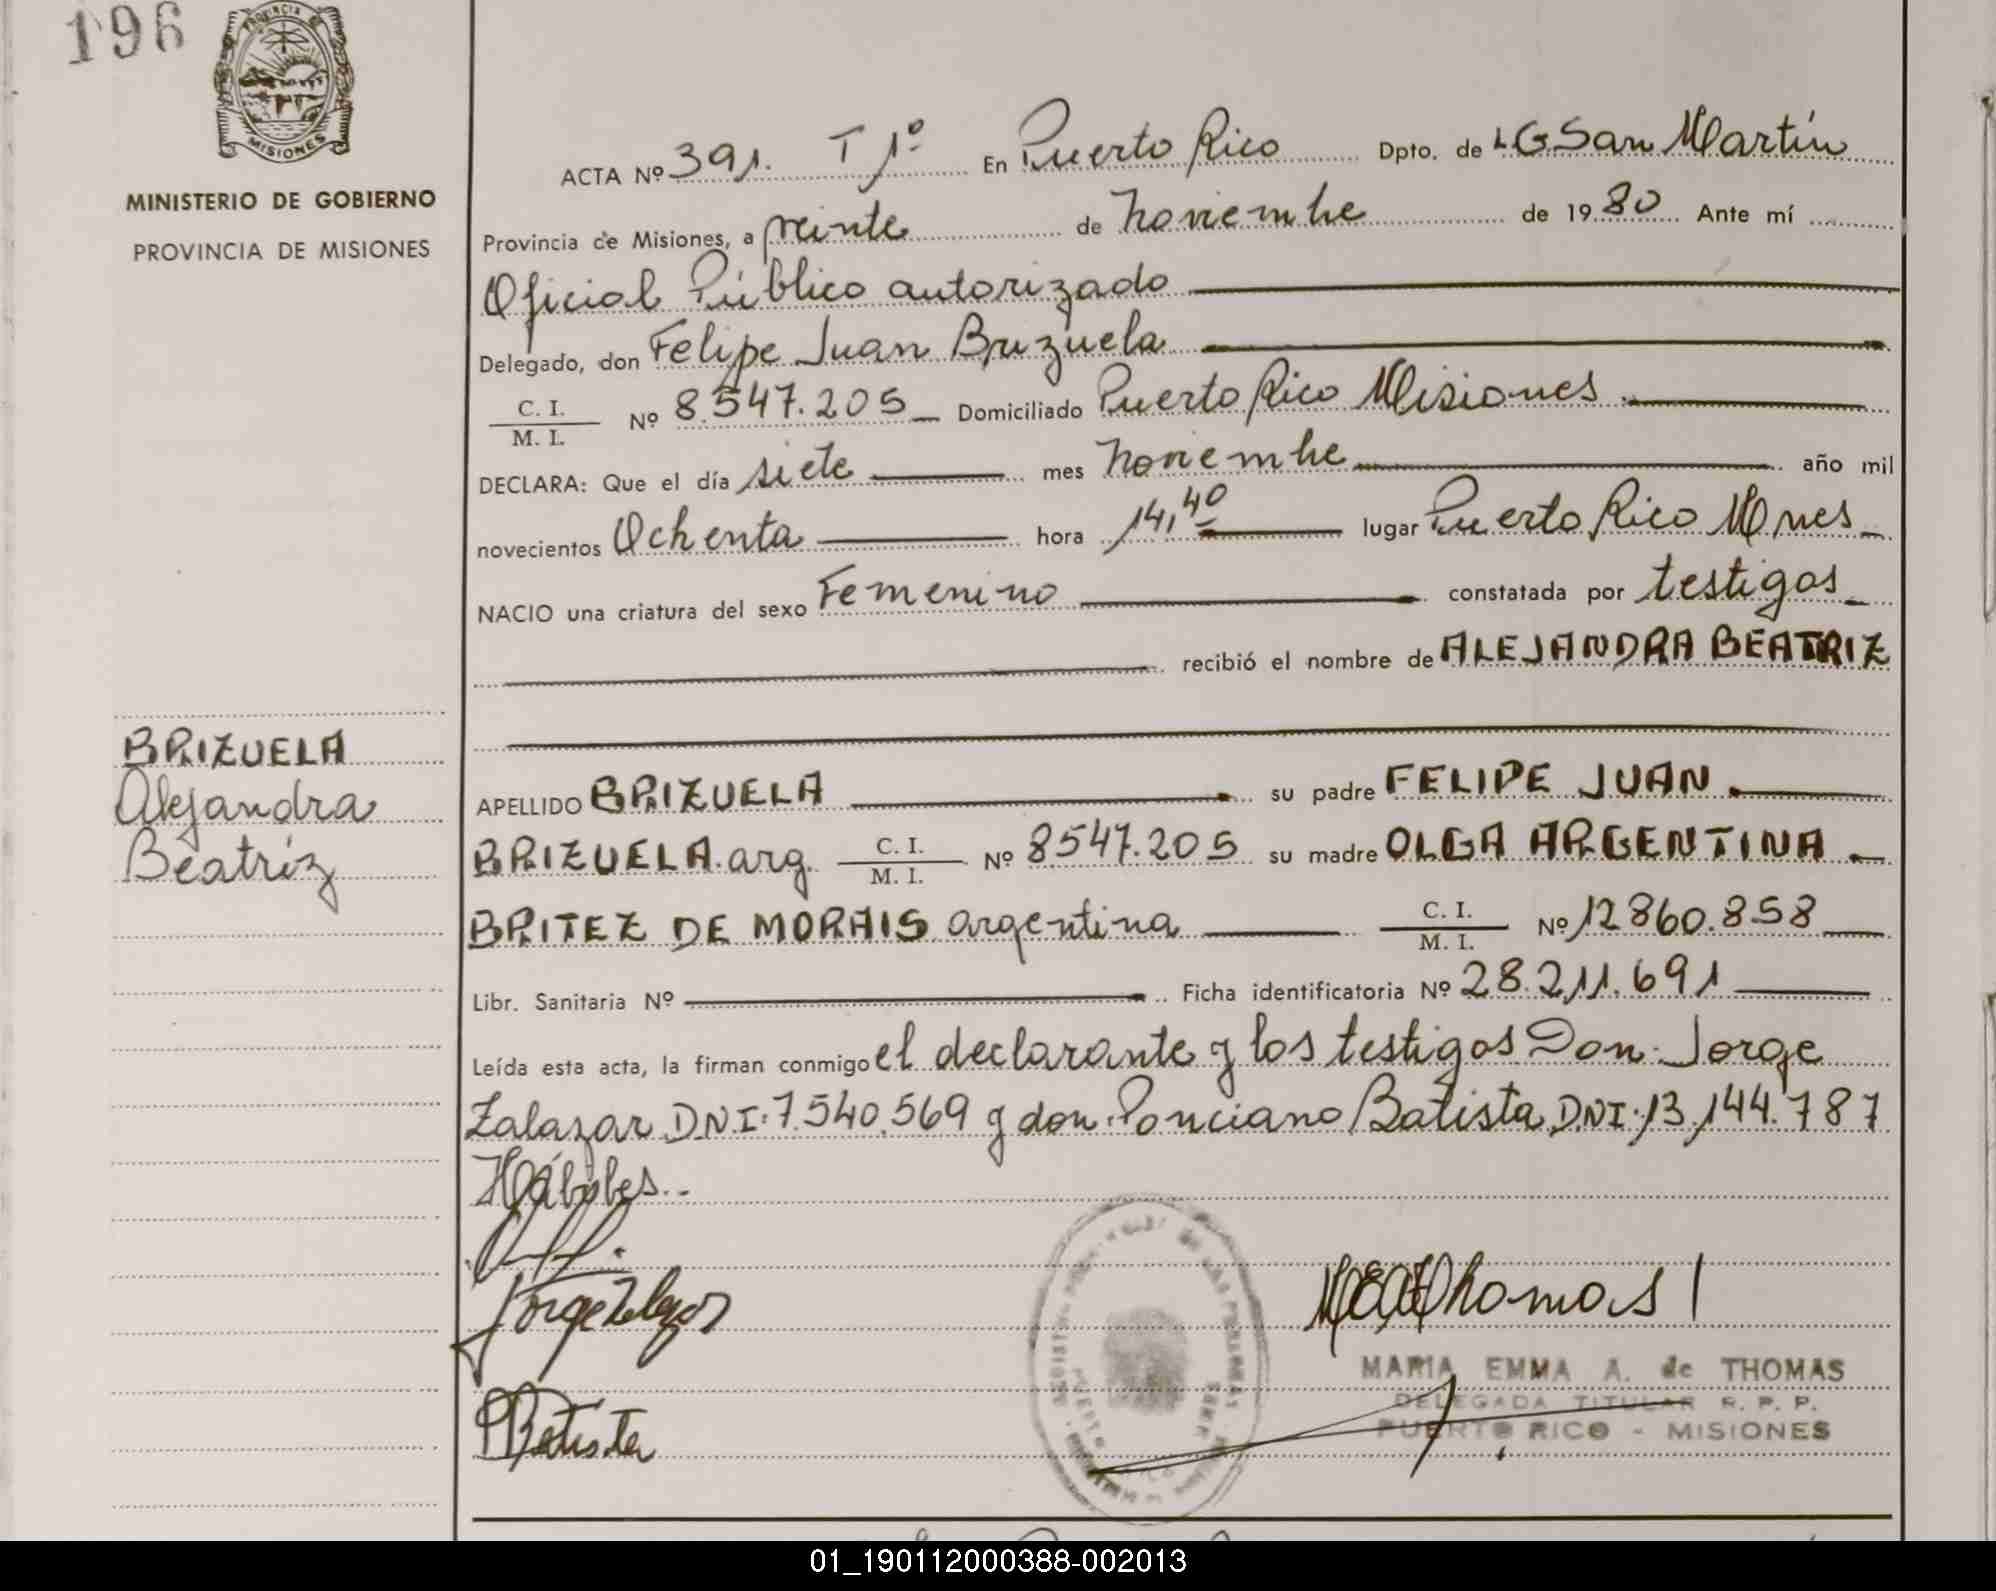 196
PROVINCIA DE
MISIONES
MINISTERIO DE GOBIERNO
PROVINCIA DE MISIONES
BRIZUELA
Alejandra
Beatriz
ACTA Nº 391. T 1º En Puerto Rico Dpto. de L G San Martín
Provincia de Misiones, a veinte de noviembre de 1980 Ante mí
Oficial Público autorizado
Delegado, don Felipe Juan Brizuela
C. I.
M. I.
Nº 8.547.205 Domiciliado Puerto Rico Misiones
DECLARA: Que el día siete mes noviembre año mil
novecientos Ochenta hora 14,40 lugar Puerto Rico Mnes
NACIO una criatura del sexo Femenino constatada por testigos
recibió el nombre de ALEJANDRA BEATRIZ
APELLIDO BRIZUELA su padre FELIPE JUAN
BRIZUELA arg. C. I. M. I. Nº 8547.205 su madre OLGA ARGENTINA
BRITEZ DE MORAIS argentina C. I. M. I. Nº 12860.858
Libr. Sanitaria Nº Ficha identificatoria Nº 28.211.691
Leída esta acta, la firman conmigo el declarante y los testigos Don. Jorge
Zalazar D.N.I. 7.540.569 y don. Ponciano Batista D.N.I. 13.144.787
Hábiles..
Jorge Zalazar
PBatista
MEAdThomas
MARIA EMMA A. de THOMAS
DELEGADA TITULAR R. P. P.
PUERTO RICO - MISIONES
01_190112000388-002013